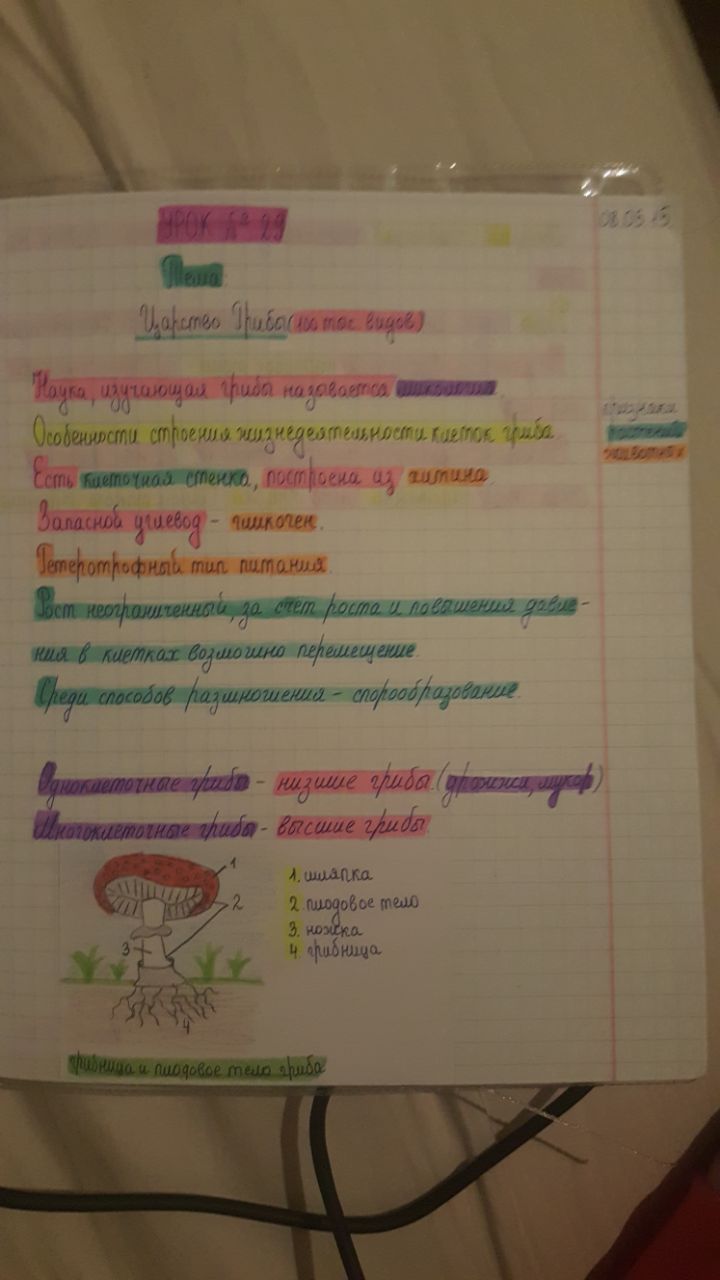 УРОК № 29
08.05.15
Тема
Царство Грибы (100 тыс. видов)
Наука, изучающая грибы называется микология.
Особенности строения жизнедеятельности клеток гриба
признаки
растений
животных
Есть клеточная стенка, построена из хитина.
Запасной углевод - гликоген.
Гетеротрофный тип питания.
Рост неограниченный, за счёт роста и повышения давле-
ния в клетках возможно перемещение.
Среди способов размножения - спорообразование.
Одноклеточные грибы - низшие грибы. (дрожжи, мукор)
Многоклеточные грибы - высшие грибы.
1
2
3
4
1. шляпка
2 плодовое тело
3. ножка
4 грибница
грибница и плодовое тело гриба